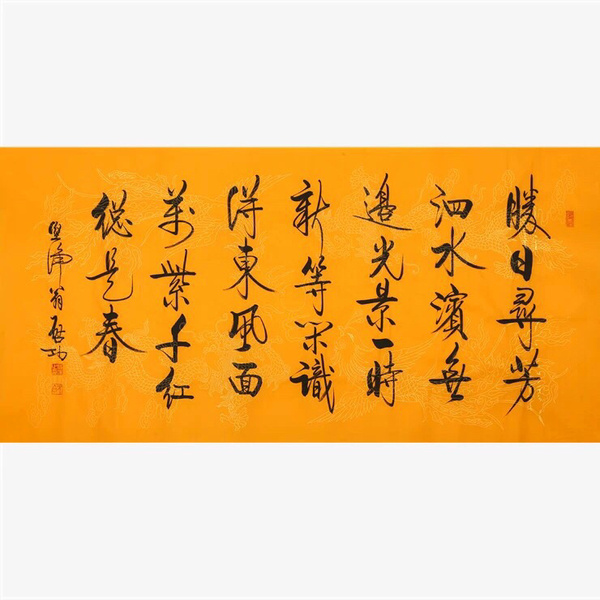 勝日尋芳
泗水濱無
邊光景一時
新等閑識
得東風面
萬紫千紅
總是春
堅淨翁啟功